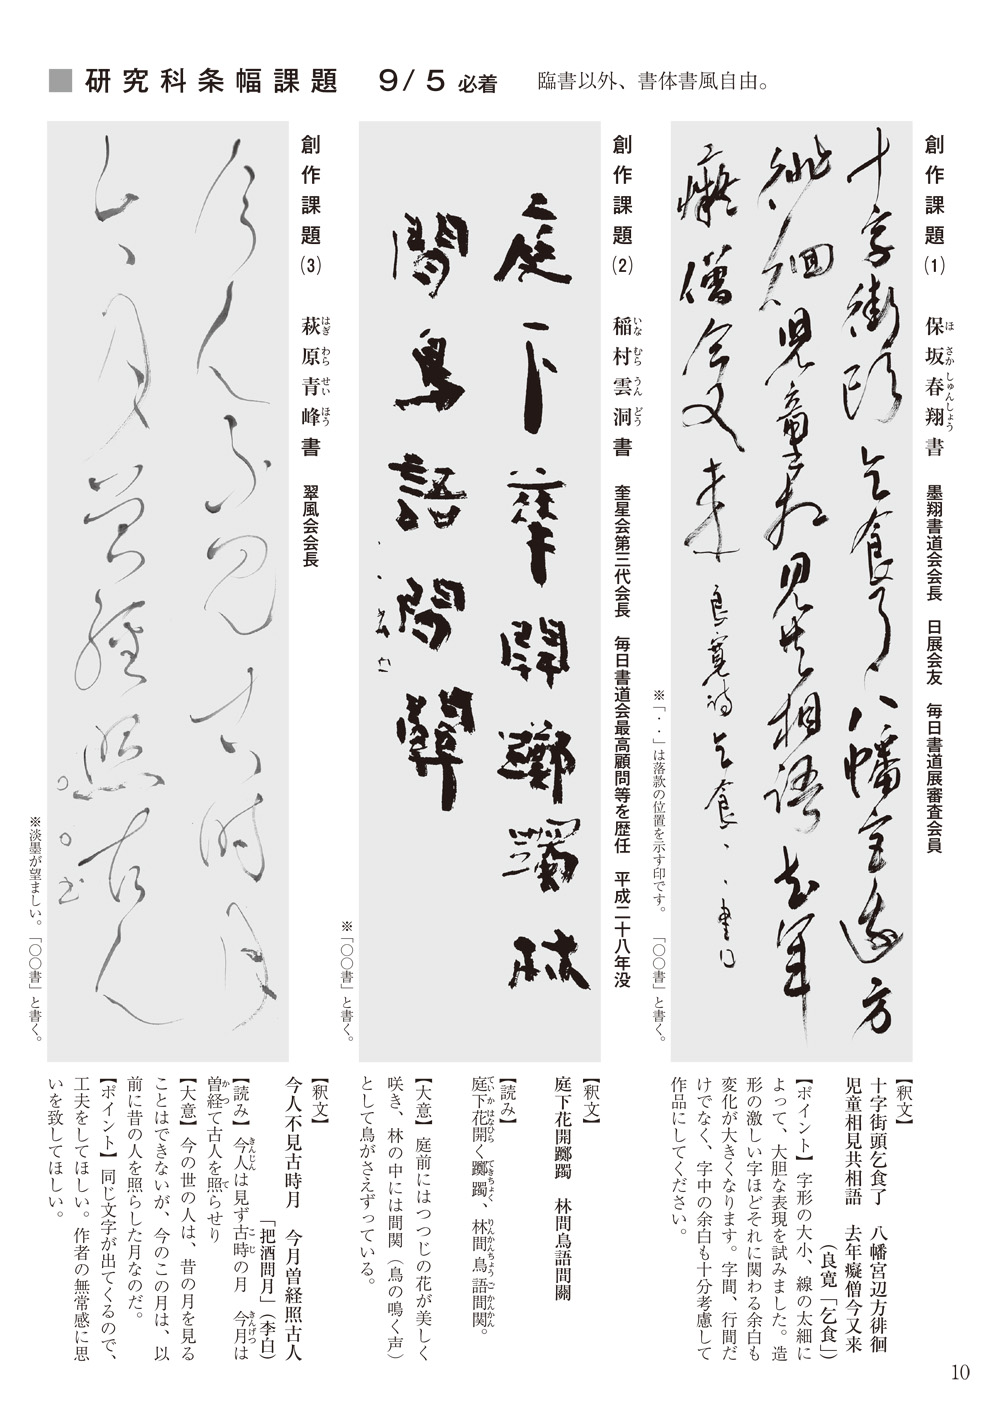 ■研究科条幅課題　9/5必着　臨書以外、書体書風自由。
創作課題(1)　保坂春翔書　墨翔書道会会長　日展会友　毎日書道展審査会員
ほ さか しゅんしょう
十字街頭乞食了八幡宮辺方
徘徊児童相見共相語去年
癡僧今又来　良寛詩乞食、、書□
※「・・」は落款の位置を示す印です。「〇〇書」と書く。
【釈文】
十字街頭乞食了　八幡宮辺方徘徊
児童相見共相語　去年癡僧今又来
（良寛「乞食」）
【ポイント】字形の大小、線の太細に
よって、大胆な表現を試みました。造
形の激しい字ほどそれに関わる余白も
変化が大きくなります。字間、行間だ
けでなく、字中の余白も十分考慮して
作品にしてください。
創作課題(2)　稲村雲洞書　奎星会第三代会長　毎日書道会最高顧問等を歴任　平成二十八年没
いな むら うん どう
庭下華開躑躅林
間鳥語間関
・・書
※「〇〇書」と書く。
【釈文】
庭下花開躑躅　林間鳥語間關
【読み】
庭下花開く躑躅、林間鳥語間関。
ていか はなひら てきちょく りんかんちょうご かんかん
【大意】庭前にはつつじの花が美しく
咲き、林の中には間関（鳥の鳴く声）
として鳥がさえずっている。
創作課題(3)　萩原青峰書　翠風会会長
はぎ わら せい ほう
今人不見古時月
今、月曽経照古人
〇〇書
※淡墨が望ましい。「〇〇書」と書く。
【釈文】
今人不見古時月　今月曽経照古人
「把酒問月」（李白）
【読み】今人は見ず古時の月　今月は
きんじん こじ きんげつ
曽経て古人を照らせり
かつ て
【大意】今の世の人は、昔の月を見る
ことはできないが、今のこの月は、以
前に昔の人を照らした月なのだ。
【ポイント】同じ文字が出てくるので、
工夫をしてほしい。作者の無常感に思
いを致してほしい。
10